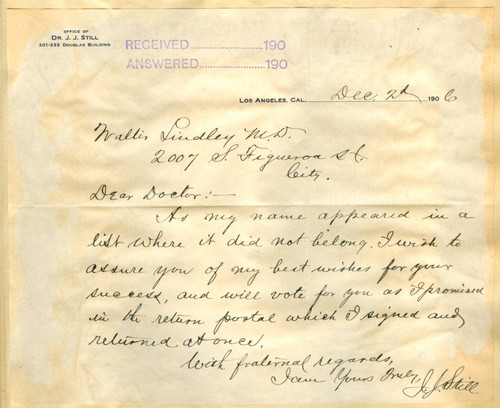 OFFICE OF
DR. J. J. STILL
321-322 DOUGLAS BUILDING
RECEIVED 190
ANSWERED 190
LOS ANGELES, CAL. Dec. 2d 1906
Walter Lindley M.D.
2007 S. Figueroa St.
City.
Dear Doctor:-
As my name appeared in a
list where it did not belong. I wish to
assure you of my best wishes for your
success, and will vote for you as I promised
in the return postal which I signed and
returned at once.
With fraternal regards,
I am Yours Truly,
J. J. Still